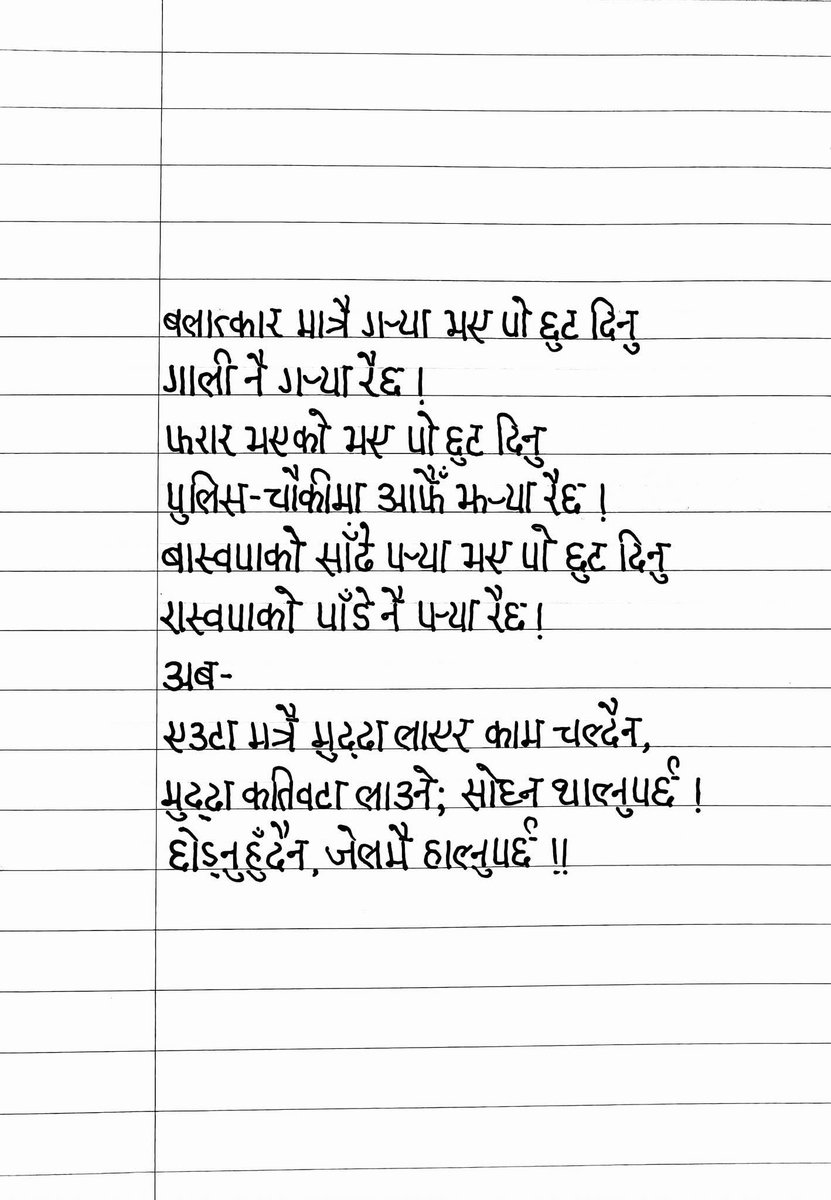 बलात्कार मात्रै गऱ्या भए पो छुट दिनु
गाली नै गऱ्या रैछ !
फरार भएको भए पो छुट दिनु
पुलिस-चौकीमा आफैँ झऱ्या रैछ !
बास्वपाको साँढे पऱ्या भए पो छुट दिनु
रास्वपाको पाँडे नै पऱ्या रैछ !
अब-
एउटा मत्रै मुद्दा लाएर काम चल्दैन,
मुद्दा कतिवटा लाउने; सोध्न थाल्नुपर्छ !
छोड्नुहुँदैन, जेलमै हाल्नुपर्छ !!